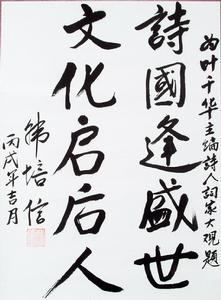 为叶千华主编诗人词家大观题
詩國逢盛世
文化启后人
韩培信
丙戌年吉月